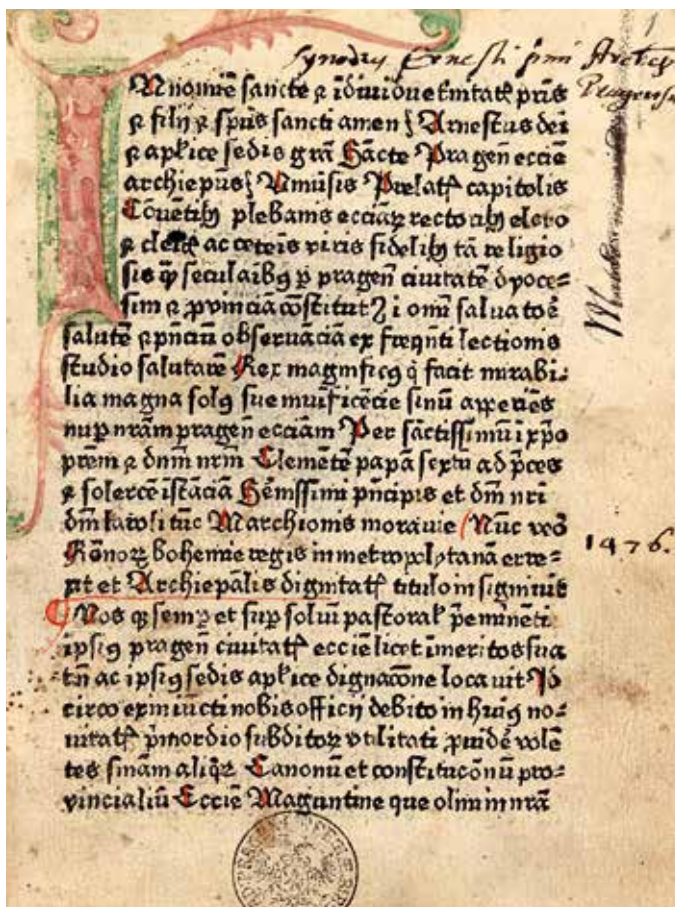 Synodus Ernesti primi Archiep
Pragensis
1
IN nomīe sancte ⁊ īdiuidue t'nitatꝭ pris
⁊ filij ⁊ spūs sancti amen Arnestus dei
⁊ aplice sedis grā Sācte Pragen̄ eccīe
archiepūs Prelatꝭ capitolis
plebanis ecciaꝝ rectoribꝫ clero
⁊ ac viris fidelibꝫ tā religio
sis qꝫ ꝑ pragen̄ ciuitatē dyoce=
sim ⁊ ꝓvinciā i omī saluatoē
salutē ⁊ obseruāciā ex lectionis
studio salutarē Rex magnificꝰ q̄ facit mirabi-
lia magna solꝰ sue muificēcie sinū apperiēs
nuꝑ nrām pragen̄ ecciam Per sāctissimū ī xp̄o
prēm ⁊ dnm̄ nrm̄ Clemētē papā sextū ad p̄ces
⁊ īstāciā pn̄cipis et dm̄ nri
dm̄ karoli tūc Marchionis morauie Nūc vero
bohemie regis in metropolytanā erre=
xit et Archiepālis dignitatꝭ titulo insigniuit
Nos qꝫ semꝑ et suꝑ soliū pastoral' p̄eminēti
ipsiꝰ pragen̄ ciuitatꝭ eccīe licet īmeritos sua
ac ipsiꝰ sedis aplice dignacōne locauit Jd
circo ex iniūcti nobis officij debito in huiꝰ no=
uitatꝭ p̄mordio subditoꝝ vtilitati ꝓuidē volē
tes Canonū et constitucōnū pro=
vincialiū Eccīe Maguntine que olim in nrā
1476.